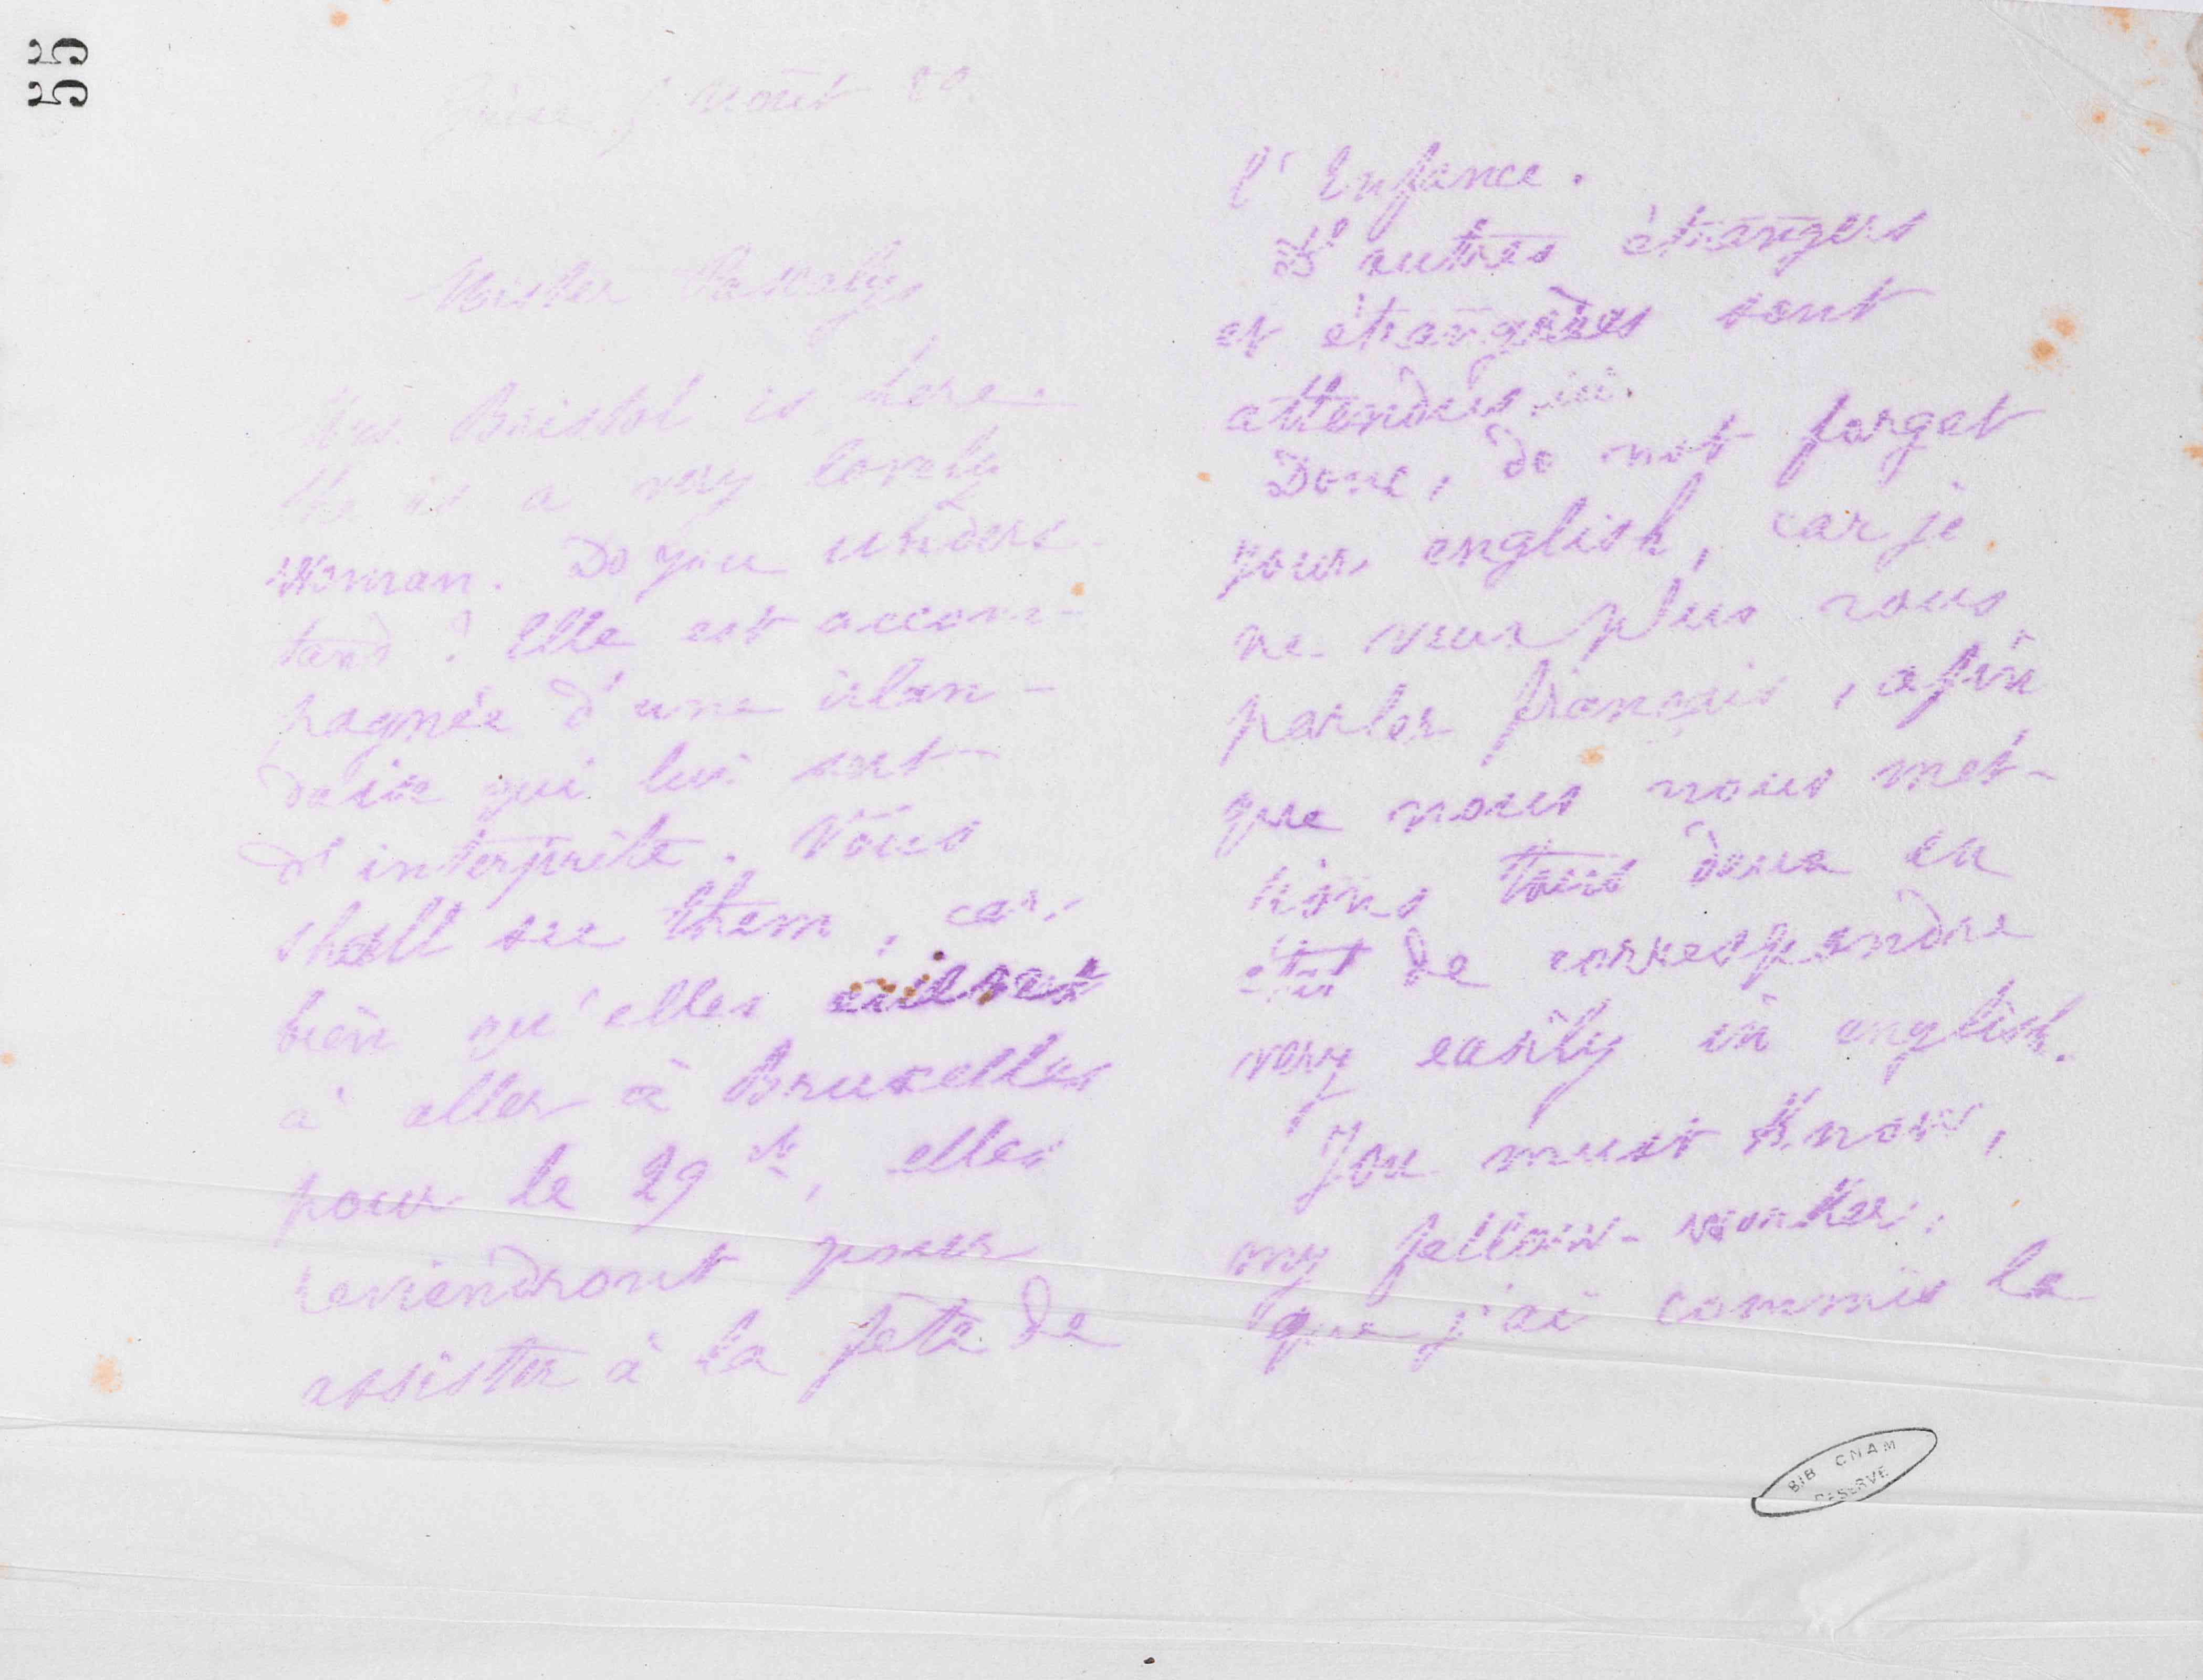 55
Guise, 5 Août 80
Mister Pascaly,
Mrs. Bristol is here.
She is a very lovely
woman. Do you unders-
tand ? Elle est accom-
pagnée d'une irlan-
daise qui lui sert
d'interprète. Vous
shall see them, car
bien qu'elles aient
à aller à Bruxelles
pour le 29 , elles
reviendront pour
assister à la fête de
l'Enfance.
D'autres étrangers
et étrangères sont
attendus ici.
Donc, do not forget
your english, car je
ne veux plus vous
parler français, afin
que nous nous met-
tions tous deux en
état de correspondre
very easily in english.
You must know,
my fellow-worker,
que j'ai commis la
BIB CNAM
RESERVE